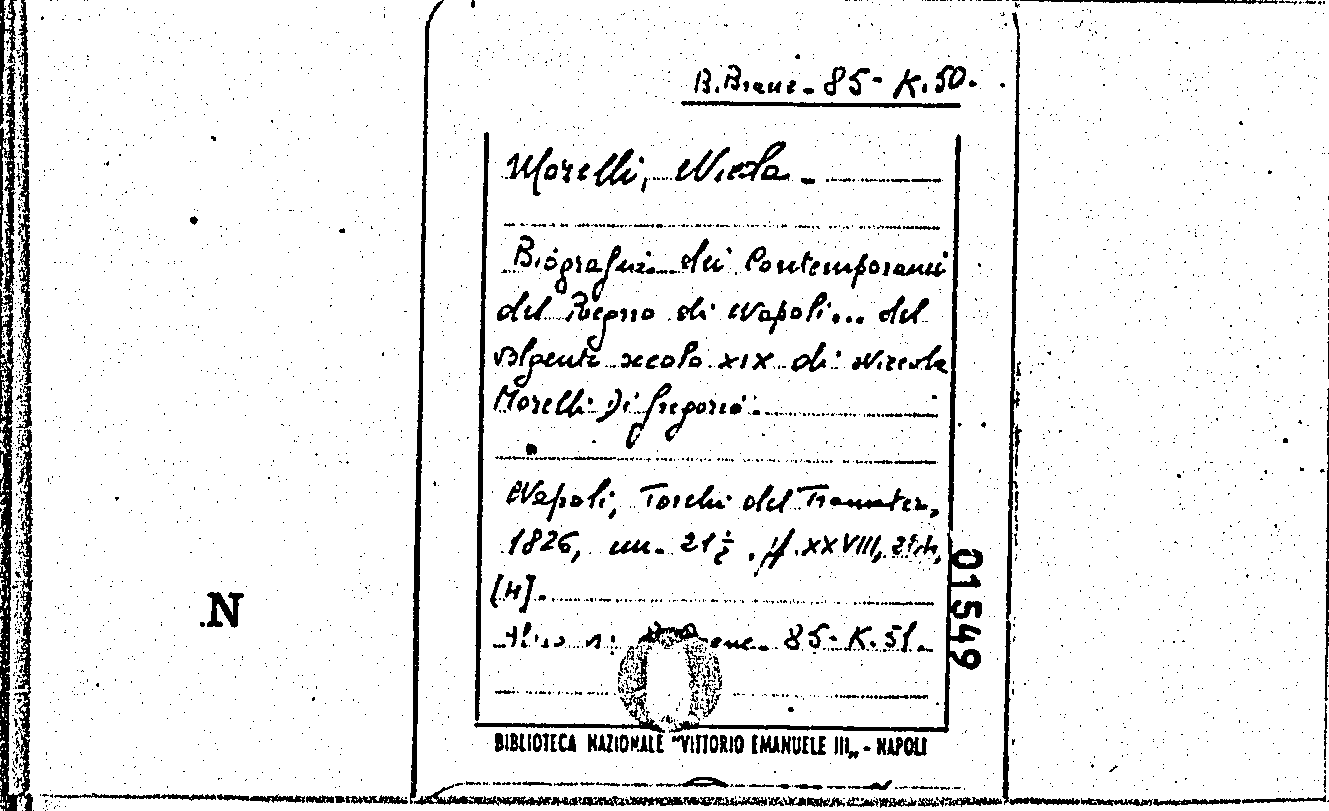 B. Branc. 85- K.50.
Morelli, Nicola -
Biografie dei Contemporanei
del Regno di Napoli... del
volgente secolo XIX di Niccola
Morelli Di Gregorio.
Napoli, Torchi del Tramater,
1826, cm. 21½. pp. XXVIII,
[4].
85- K.51.
01549
.N
BIBLIOTECA NAZIONALE "VITTORIO EMANUELE III„ - NAPOLI